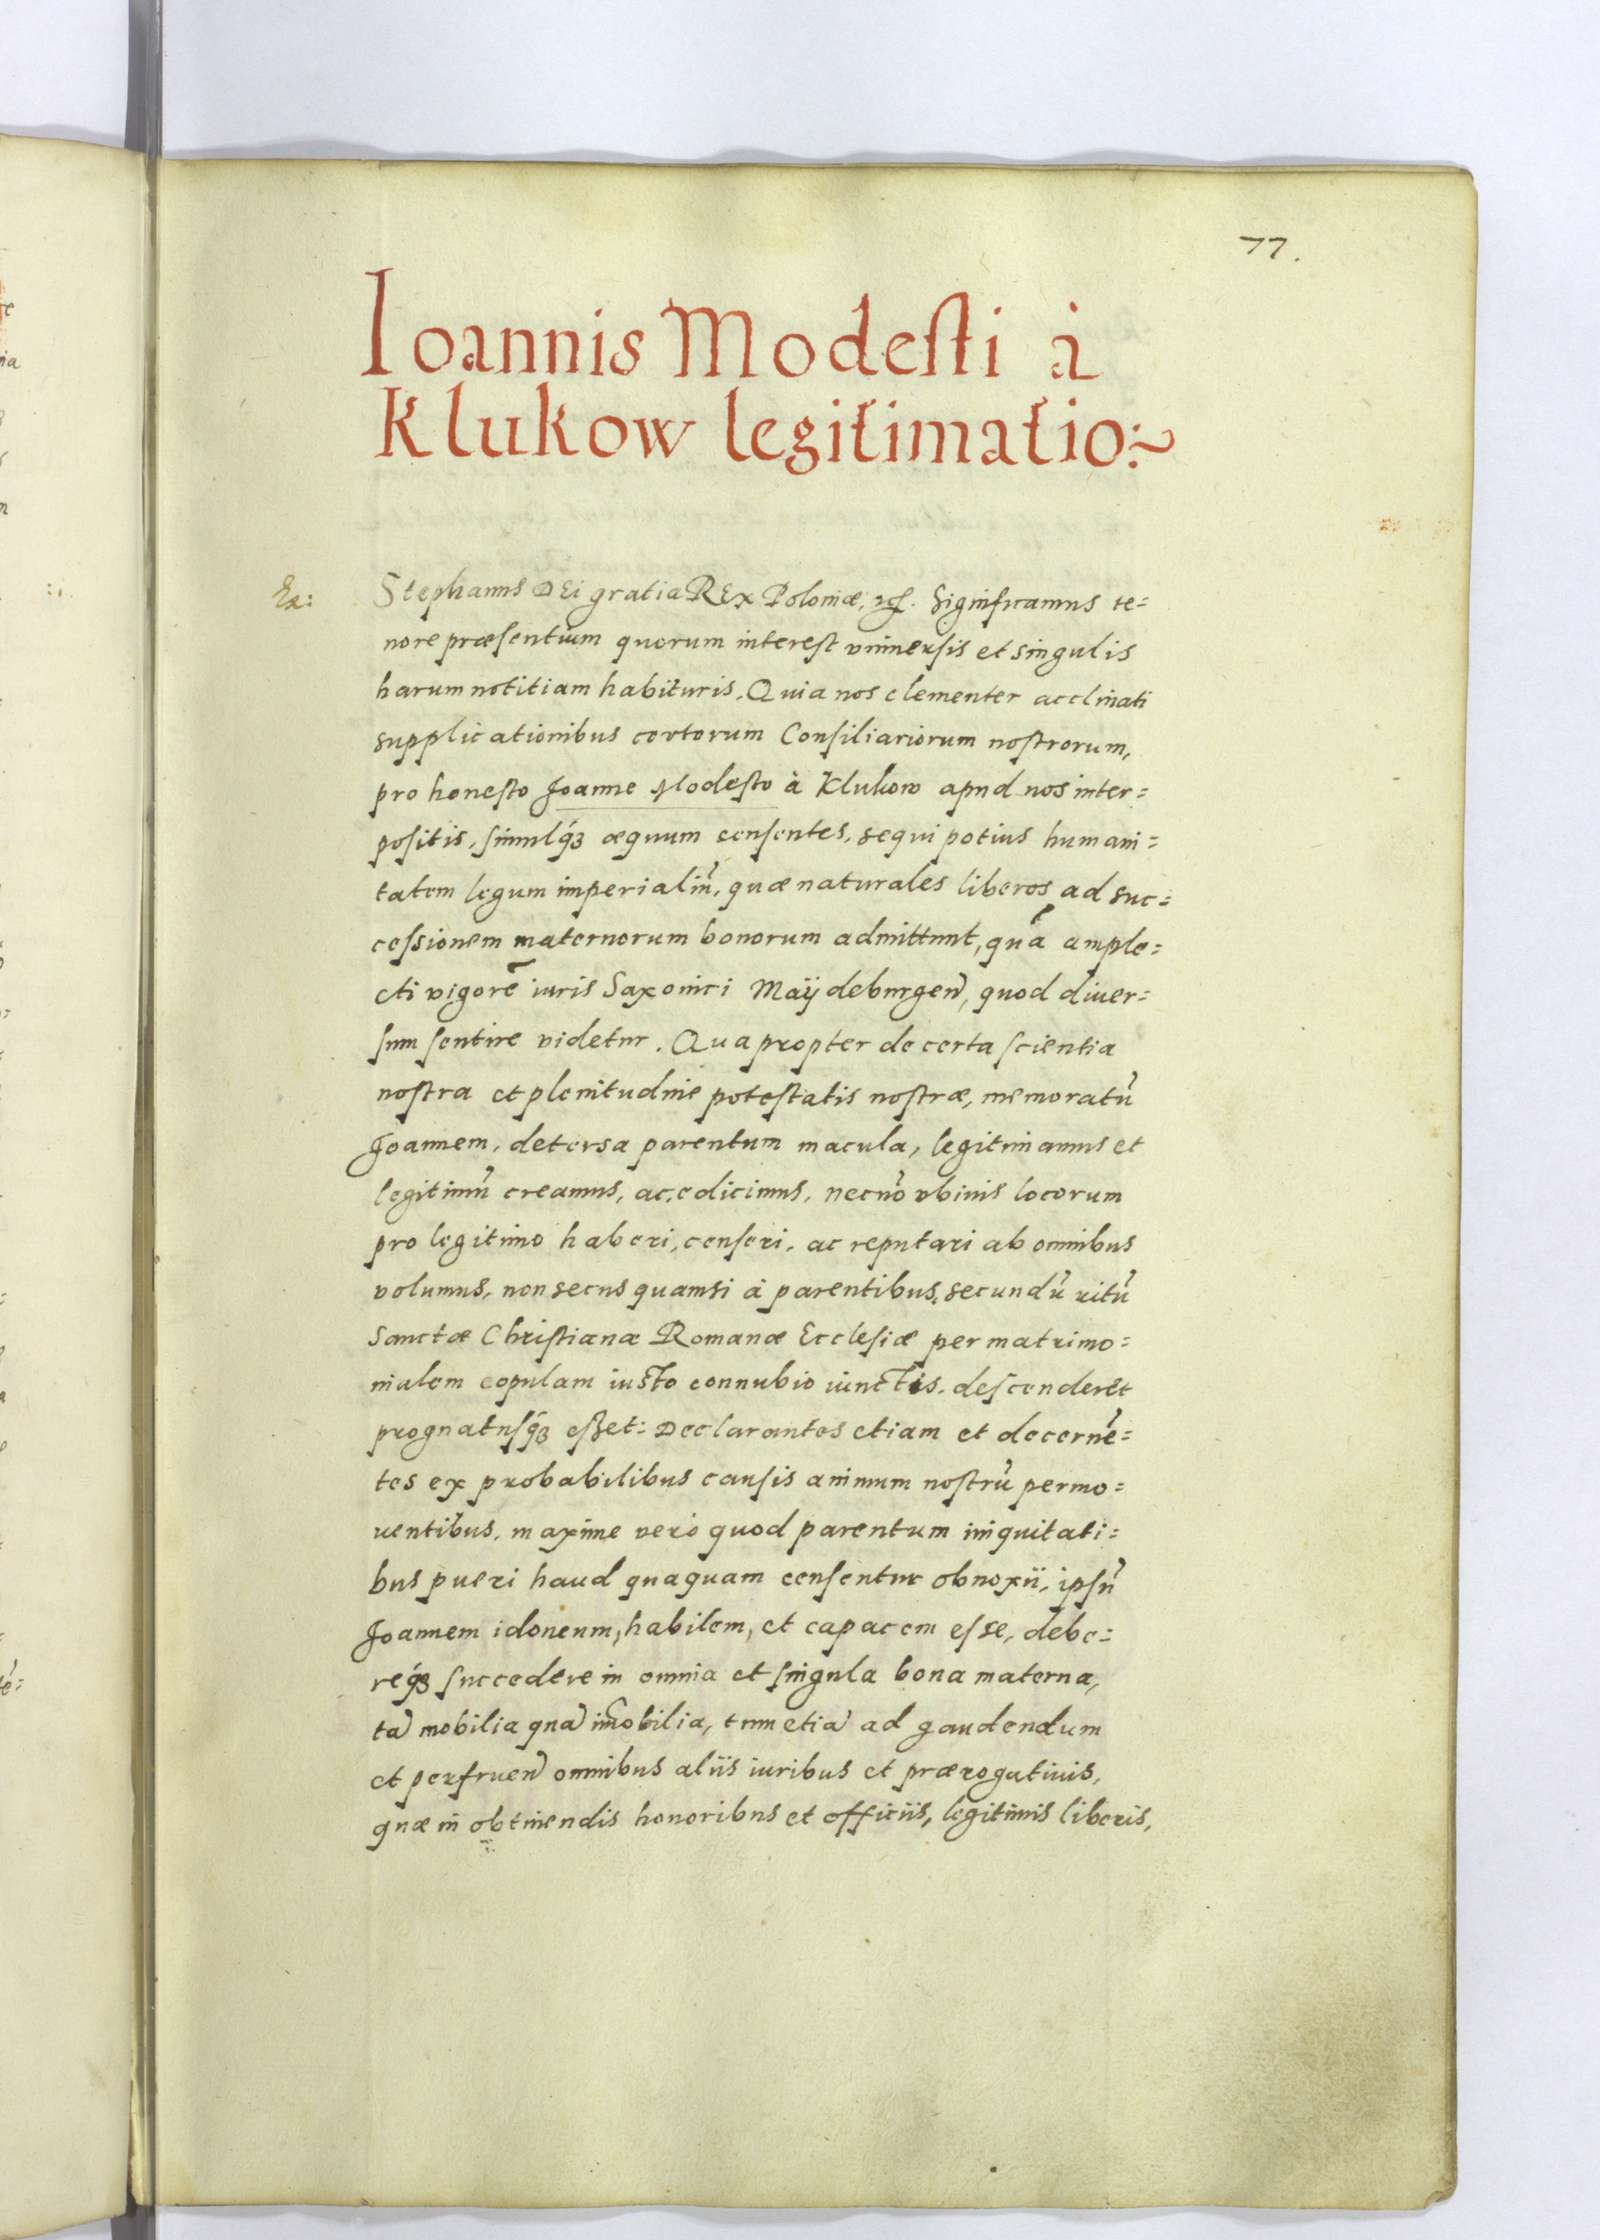 77.
Ioannis Modesti à
Klukow legitimatio:~
Ex:
Stephanus DEi gratia REx Poloniæ, etc. Significamus te=
nore præsentium quorum interest vniuersis et singulis
harum notitiam habituris. Quia nos clementer acclinati
supplicationibus certorum Consiliariorum nostrorum,
pro honesto Joanne Modesto à Klukow apud nos inter=
positis, simulq́ꝫ æquum censentes, sequi potius humani=
tatem legum imperialiũ, quæ naturales liberos ad suc=
cessionem maternorum bonorum admittunt, quã ample=
cti vigorẽ iuris Saxonici Maÿdeburgeñ, quod diuer=
sum sentire videtur. Quapropter de certa scientia
nostra et plenitudine potestatis nostræ, memoratũ
Joannem, detersa parentum macula, legitimamus et
legitimũ creamus, ac edicimus, necnõ vbiuis locorum
pro legitimo haberi, censeri, ac reputari ab omnibus
volumus, non secus quamsi à parentibus, secundũ ritũ
Sanctæ Christianæ Romanæ Ecclesiæ per matrimo=
nialem copulam iusto connubio iunctis, descenderet
prognatusq́ꝫ esset: Declarantes etiam et decernẽ=
tes ex probabilibus causis animum nostrũ permo=
uentibus, maxime verò quod parentum iniquitati=
bus pueri haud quaquam censentur obnoxii, ipsũ
Joannem idoneum, habilem, et capacem esse, debe=
req́ꝫ succedere in omnia et singula bona materna,
tã mobilia quã im̃obilia, tum etiã ad gaudendum
et perfrueñ omnibus aliis iuribus et prærogatiuis,
quæ in obtinendis honoribus et officiis, legitimis liberis,